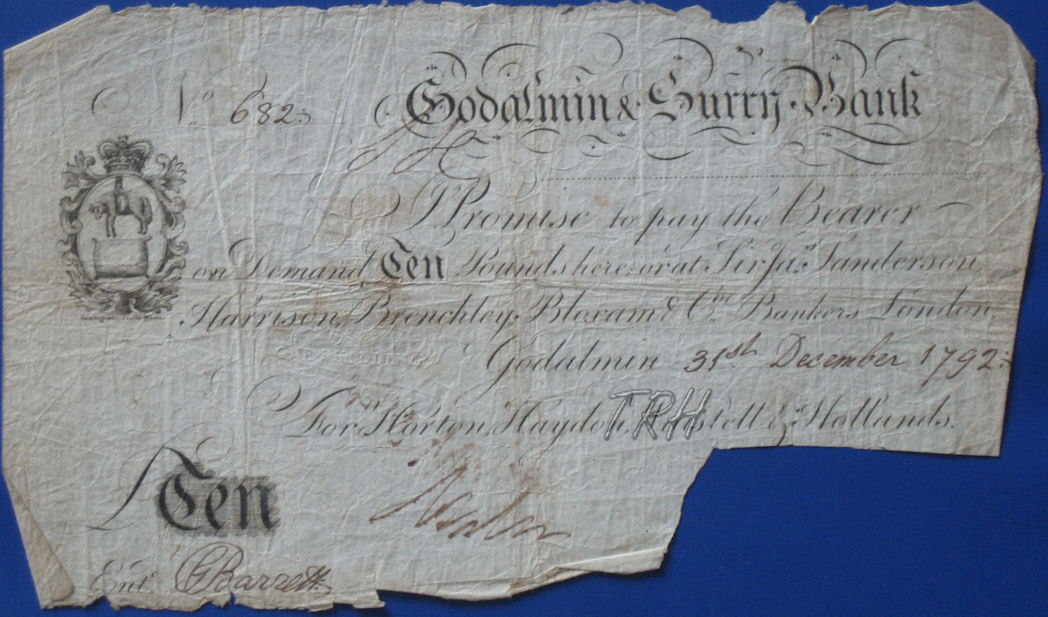 No. 682. Godalmin & Surry Bank
I Promise to pay the Bearer
on Demand Ten Pounds here or at Sir Jas. Sanderson,
Harrison, Brenchley, Bloxam & Co. Bankers London.
Godalmin 31st. December 1792.
For Horton, Haydon, & Hollands.
TRH
£ Ten
Entd. Barrett